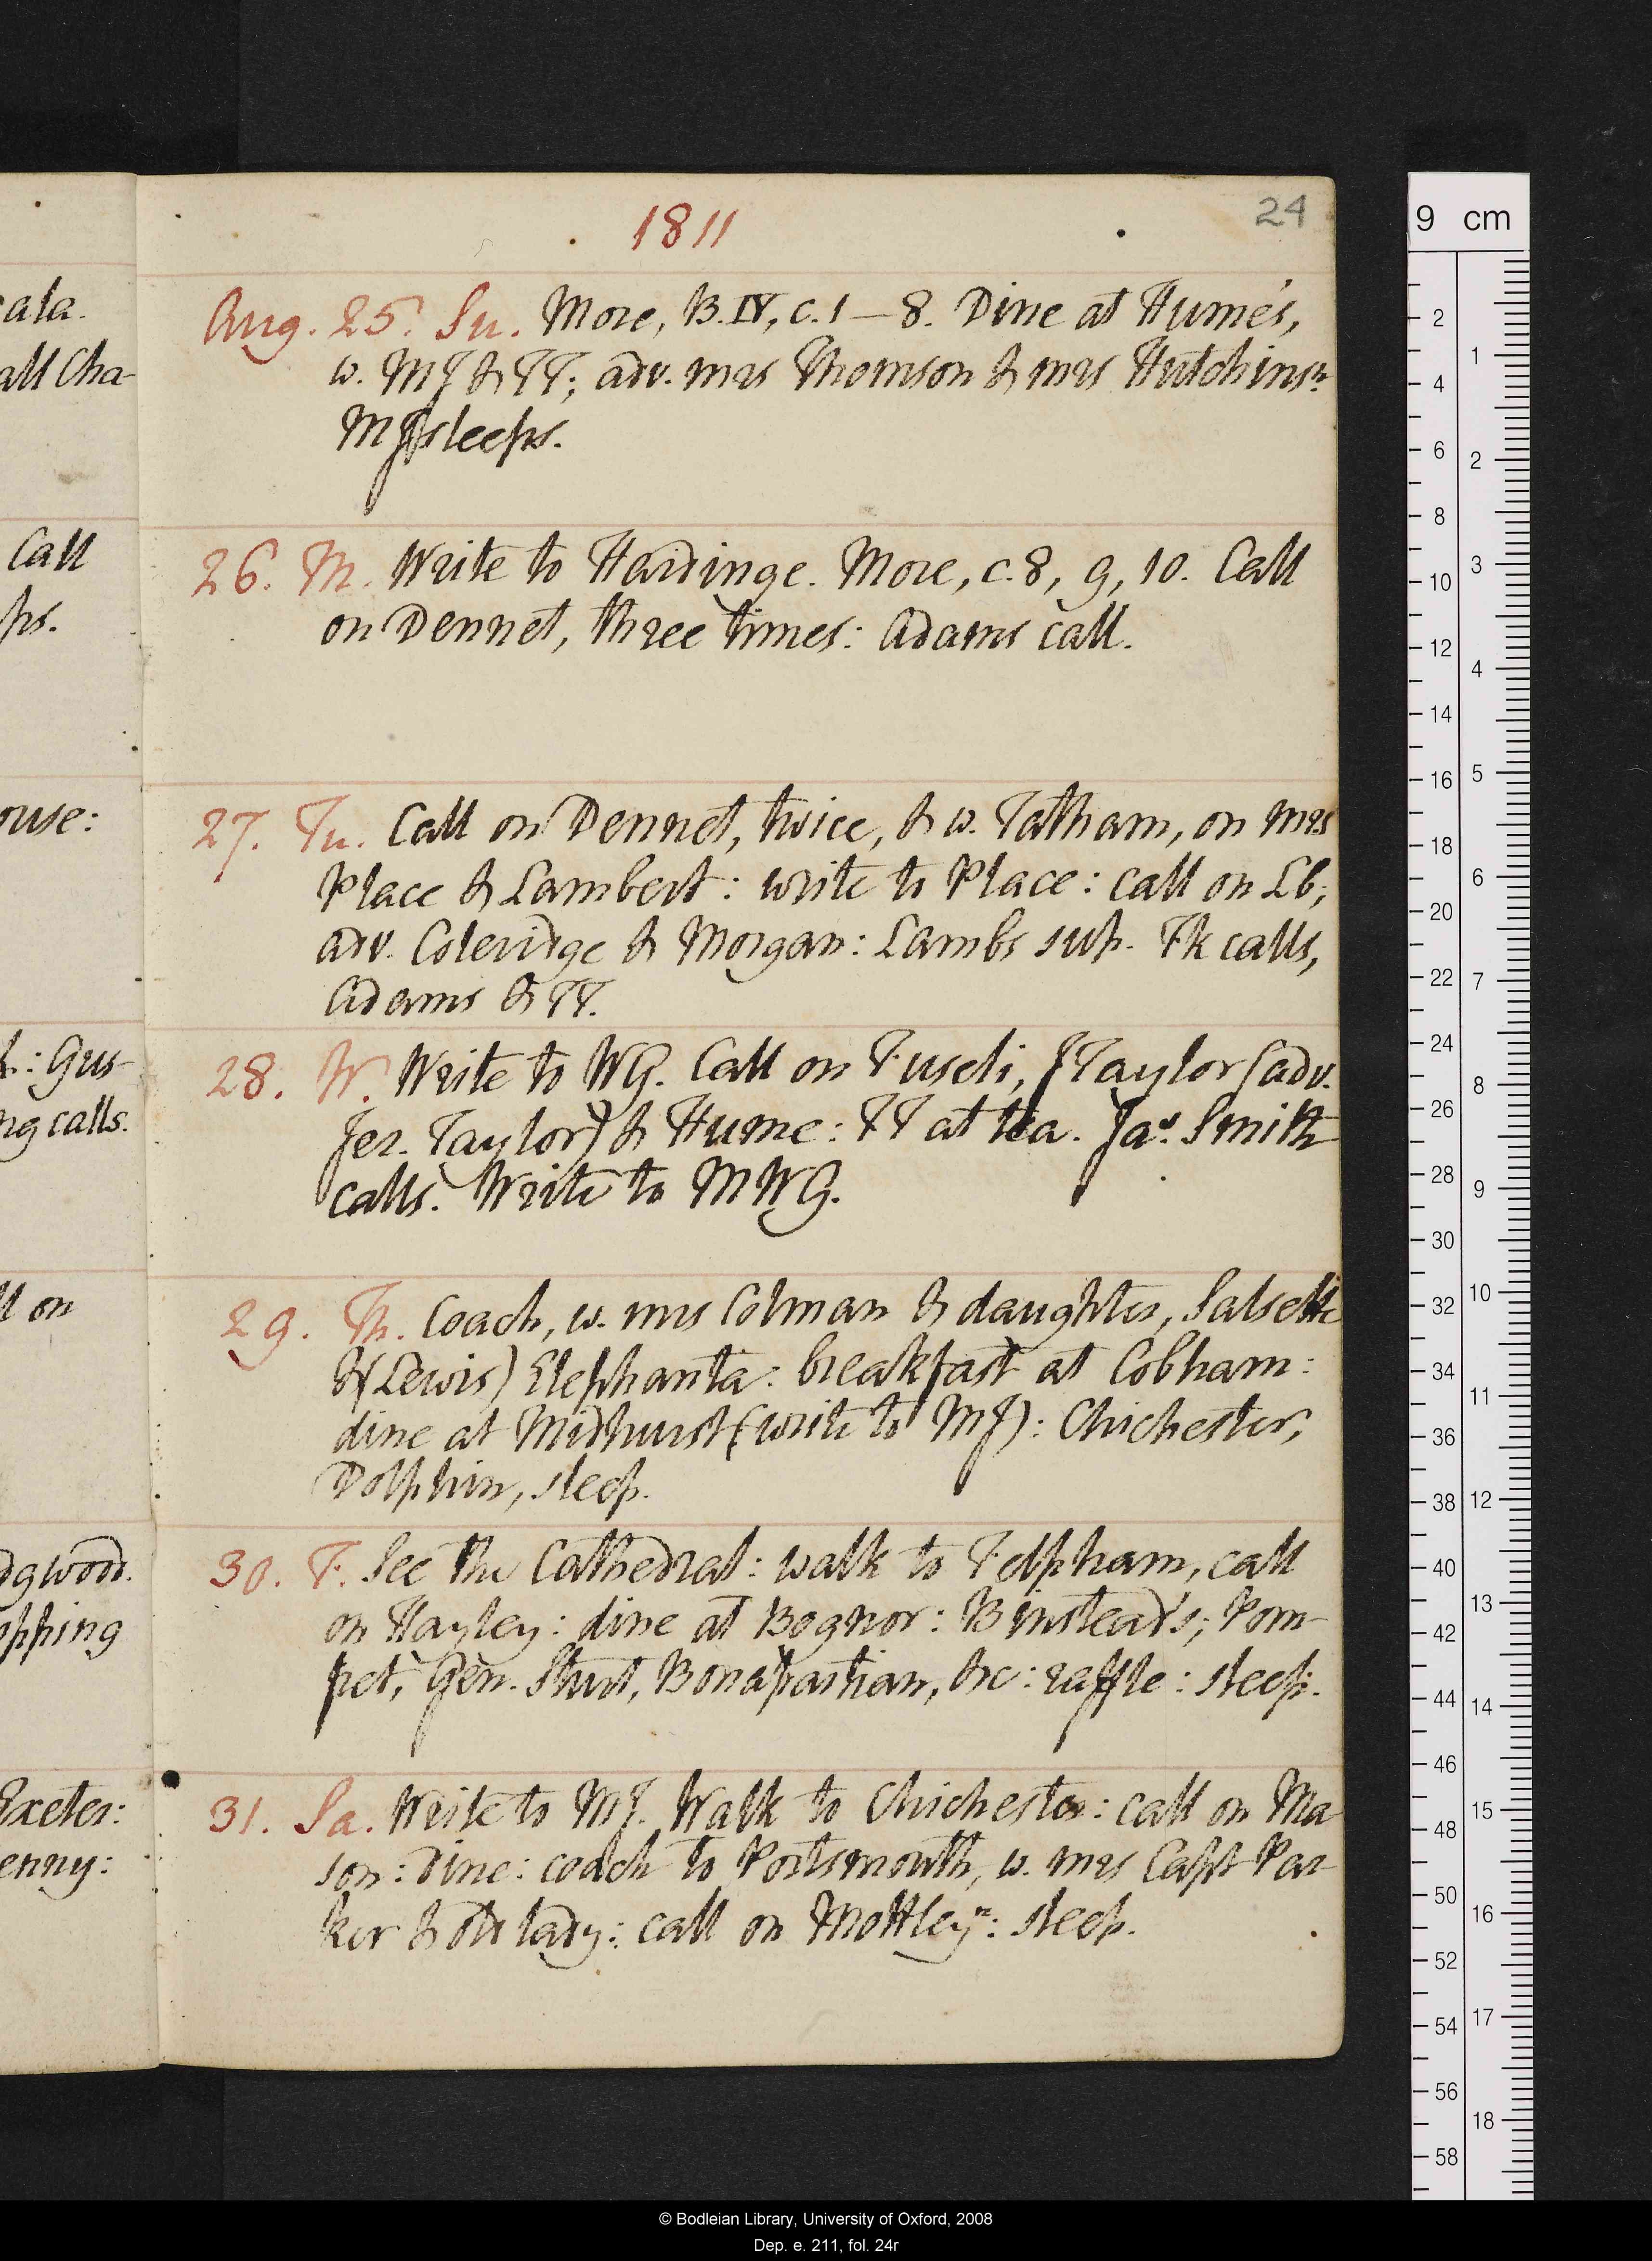 1811
24
Aug. 25. Su. More, B. IV, c. 1 — 8. Dine at Hume's,
w. MJ & TT; adv. mrs Thomson & mrs Hutchinsn.
MJ sleeps.
26. M. Write to Hardinge. More, c. 8, 9, 10. Call
on Dennet, three times: Adams call.
27. Tu. Call on Dennet, twice, & w. Tatham, on mrs
Place & Lambert: write to Place: call on Lb;
adv. Coleridge & Morgan: Lambs sup. Fk calls,
Adams & TT.
28. W. Write to WG. Call on Fuseli, J Taylor (adv.
Jer. Taylor) & Hume: TT at tea. Jas. Smith
calls. Write to MWG.
29. Th. Coach, w. mrs Colman & daughter, Salsette
& (Lewis) Elephanta: breakfast at Cobham:
dine at Midhurst (write to MJ): Chichester,
Dolphin, sleep.
30. F. See the Cathedral: walk to Felpham, call
on Hayley: dine at Bognor: Binstead's; Pom-
pet, Gen. Sturt, Bonapartian, &c: raffle: sleep.
31. Sa. Write to MJ. Walk to Chichester: call on Ma
son: dine: coach to Portsmouth, w. mrs Capt Par-
ker & old lady: call on Mottley: sleep.
ala.
all Cha-
Call
ps.
ouse:
: Gus-
ng calls.
ll on
dgwood.
pping
Exeter:
enny:
9 cm
2
4
6
8
10
12
14
16
18
20
22
24
26
28
30
32
34
36
38
40
42
44
46
48
50
52
54
56
58
1
2
3
4
5
6
7
8
9
10
11
12
13
14
15
16
17
18
© Bodleian Library, University of Oxford, 2008
Dep. e. 211, fol. 24r